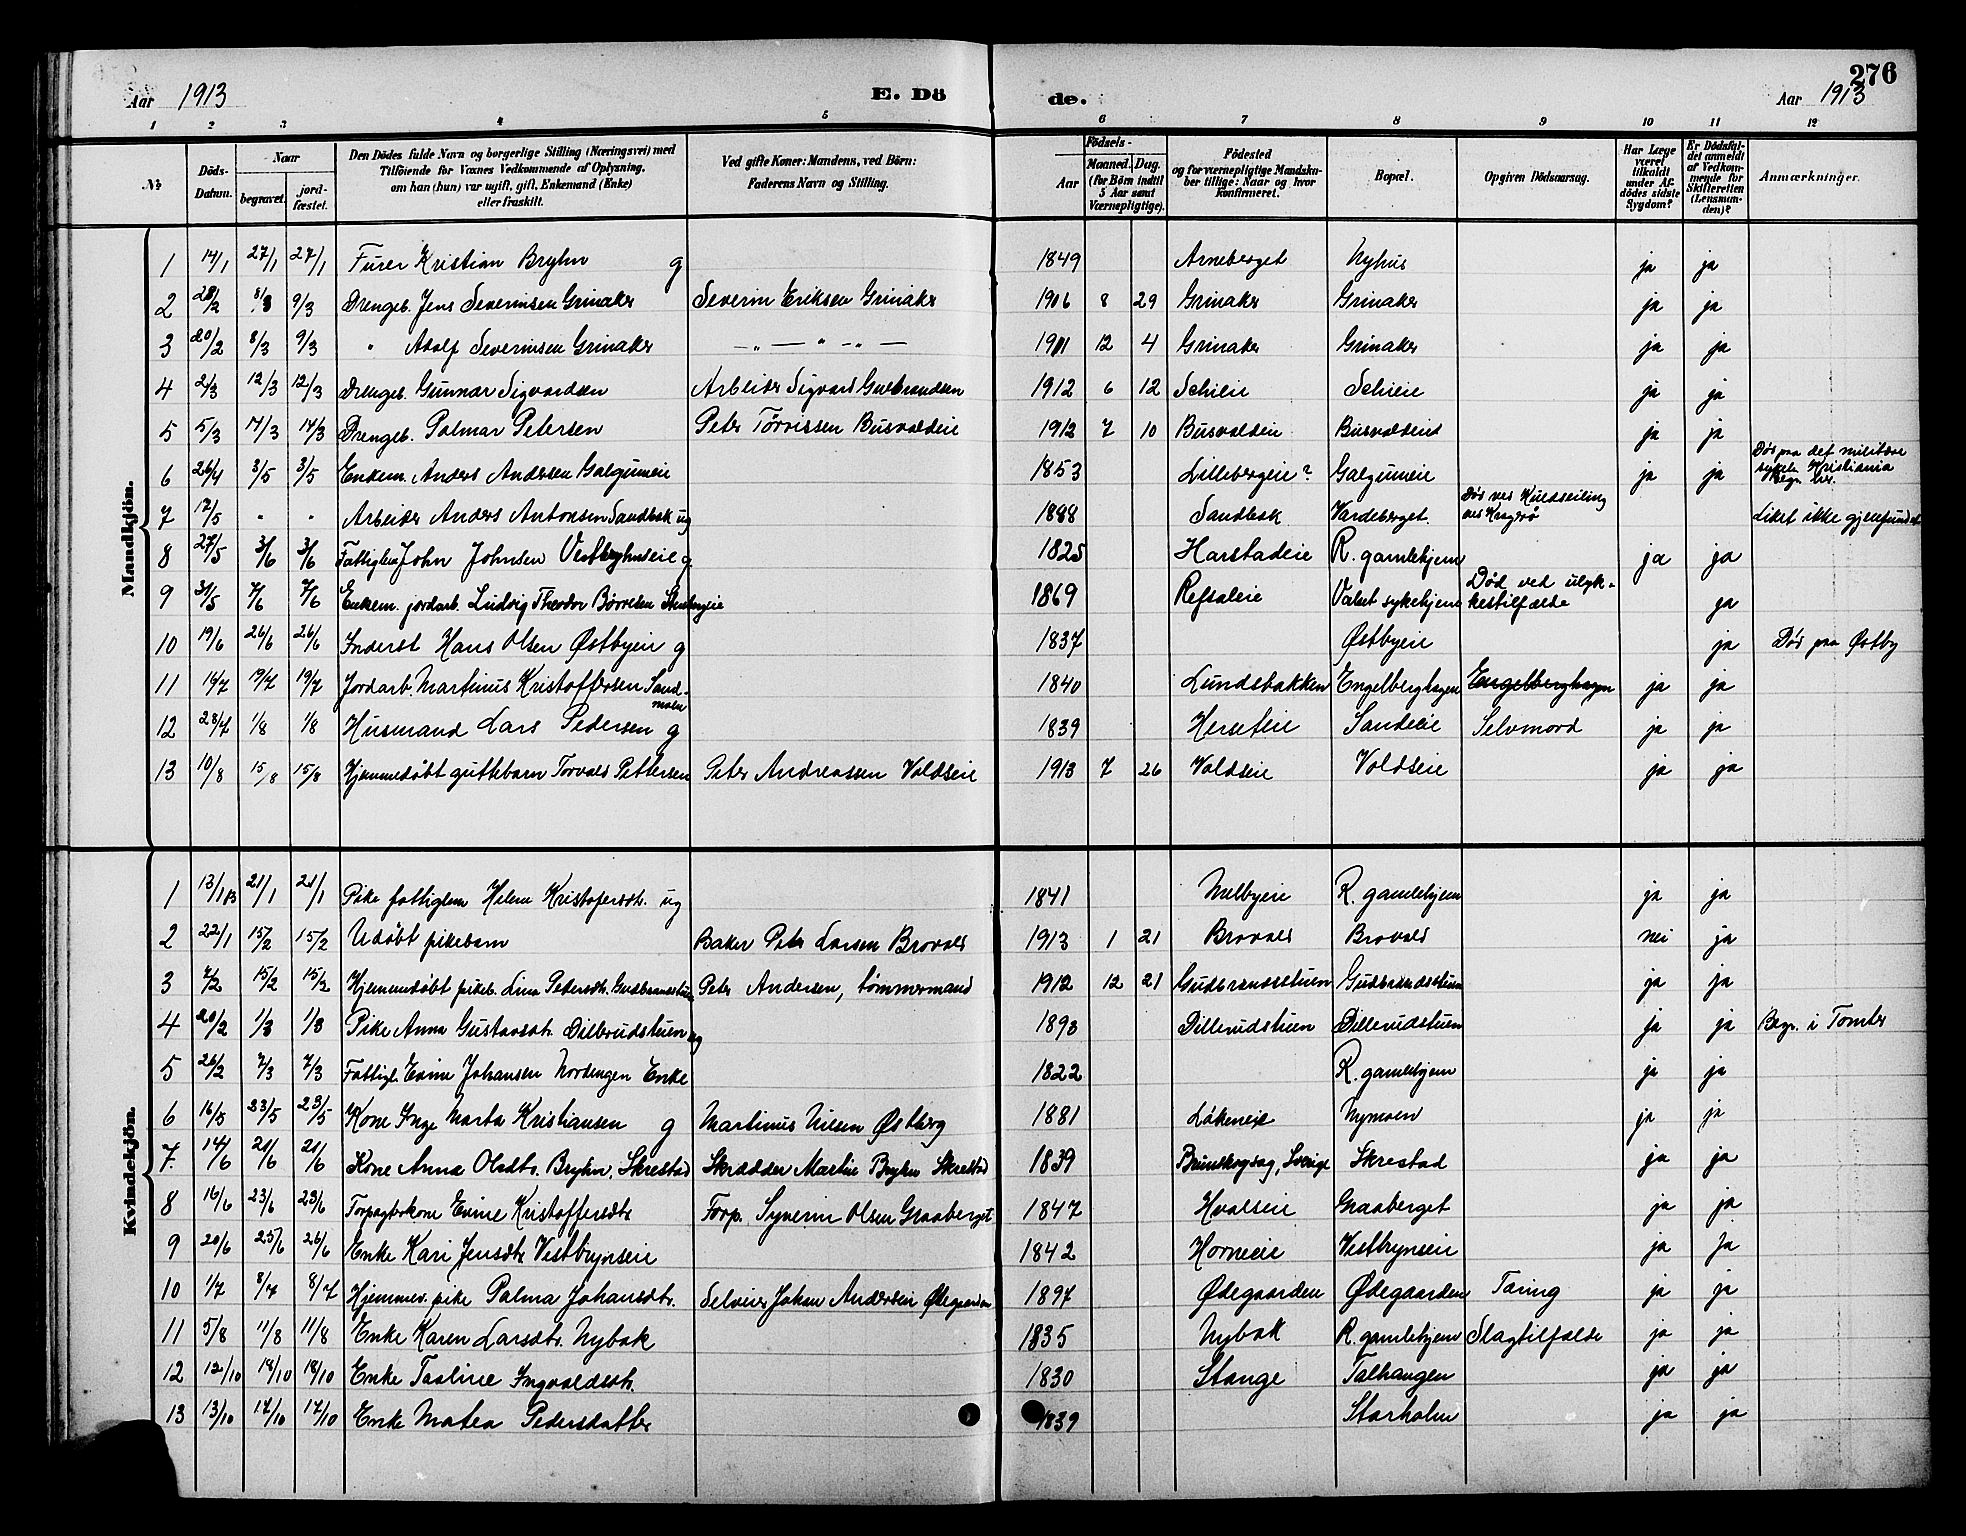 276
Aar 1913 E. Dö
de. Aar 1913
1 2 3 4 5 6 7 8 9 10 11 12
№ Döds-Datum. Naar begravet. jord-fæstet. Den Dödes fulde Navn og borgerlige Stilling (Næringsvei) med Tilföiende for Voxnes Vedkommende af Oplysning, om han (hun) var ugift, gift, Enkemand (Enke) eller fraskilt. Ved gifte Koner: Mandens, ved Börn: Faderens Navn og Stilling. Födsels- Aar Maaned. Dag. (for Börn indtil 5 Aar samt Værnepligtige). Födested og for værnepligtige Mandskaber tillige: Naar og hvor konfirmeret. Bopæl. Opgiven Dödsaarsag. Har Læge været tilkaldt under Afdödes sidste Sygdom? Er Dödsfaldet anmeldt af Vedkommende for Skifteretten (Lensmanden)? Anmærkninger.
Mandkjön.
1 14/1 27/1 27/1 Furer Kristian Bryhn g 1849 Arneberget Nyhus ja ja
2 28/2 8/3 9/3 Drengeb. Jens Severinsen Grinaker Severin Eriksen Grinaker 1906 8 29 Grinaker Grinaker ja ja
3 20/2 8/3 9/3 " Adolf Severinsen Grinaker — „ — " — „ — 1911 12 4 Grinaker Grinaker ja ja
4 2/3 12/3 12/3 Drengeb. Gunnar Sigvardsen Arbeider Sigvard Gulbrandsen 1912 6 12 Schieie Schieie ja ja
5 5/3 14/3 14/3 Drengeb. Palmar Petersen Peter Torvissen Busvoldeie 1912 7 10 Busvoldeie Busvoldeie ja ja
6 26/4 3/5 3/5 Enkem. Anders Andersen Galgumeie 1853 Lillebergeie? Galgumeie ja ja Død paa det militære sykeh. Kristiania begr. her.
7 12/5 " " Arbeider Anders Antonsen Sandbæk ug 1888 Sandbæk Vardeberget. Død ved Kuldseiling ved Kragerø Liket ikke gjenfundet
8 27/5 3/6 3/6 Fattiglem John Johnsen Vestbryhnseie g. 1825 Harstadeie R. gamlehjem ja ja
9 31/5 7/6 7/6 Enkem. jordarb. Ludvig Theodor Børresen Stenbergeie 1869 Refsaleie Valset sykehjem Død ved ulykkestilfælde ja
10 19/6 26/6 26/6 Inderst Hans Olsen Østbyeie g 1837 Østbyeie ja Død paa Østby
11 14/7 19/7 19/7 Jordarb. Martinus Kristoffersen Sandmoen 1840 Lundsbakken Engelberghagen Engelberghagen ja ja
12 28/7 1/8 1/8 Husmand Lars Pedersen g 1839 Herseteie Sandeie Selvmord ja ja
13 10/8 15/8 15/8 Hjemmedøbt guttebarn Torvald Pettersen Peter Andreassen Voldseie 1913 7 26 Voldseie Voldseie ja ja
Kvindekjön.
1 13/1 13 21/1 21/1 Pike fattiglem Helene Kristofersdt. ug 1841 Melbyeie R. gamlehjem ja ja
2 22/1 15/2 15/2 Udøbt pikebarn Baker Peter Larsen Brovold 1913 1 21 Brovold Brovold nei ja
3 7/2 15/2 15/2 Hjemmedøbt pikeb. Lina Pedersdt. Gudbrandsstuen Peter Andersen, tømmermand 1912 12 21 Gudbrandsstuen Gudbrandsstuen ja ja
4 20/2 1/3 1/3 Pike Anna Gustavsdt. Dillerudstuen ug 1893 Dillerudstuen Dillerudstuen ja ja Begr. i Tomter
5 26/2 7/3 7/3 Fattigl. Evine Johansen Nordengen Enke 1822 R. gamlehjem ja ja
6 16/5 23/5 23/5 Kone Inga Marta Kristiansen g Martinus Nilsen Østberg 1881 Løkeneie Nymoen ja ja
7. 14/6 21/6 21/6 Kone Anna Olsdtr. Bryhn, Skrestad Skrædder Martin Bryhn Skrestad 1839 Brunskogsag, Sverige Skrestad ja ja
8 16/6 23/6 23/6 Forpagterkone Evine Kristoffersdtr. Forp. Syverin Olsen Graaberget 1847 Hvalseie Graaberget ja ja
9 20/6 25/6 26/6 Enke Kari Jensdtr. Vestbrynseie 1842 Horneeie Vestbrynseie ja ja
10 1/7 8/7 8/7 Hjemmev. pike Palma Johansdtr. Selveier Johan Andersen Ødegaarden 1897 Ødegaarden Ødegaarden Tæring ja ja
11 5/8 11/8 11/8 Enke Karen Larsdtr. Nybak 1835 Nybak R. gamlehjem Slagtilfælde ja ja
12 12/10 18/10 18/10 Enke Taaline Ingvaldsdt. 1830 Stange Talhaugen ja ja
13 13/10 17/10 17/10 Enke Matea Pedersdatter 1839 Storholm ja ja